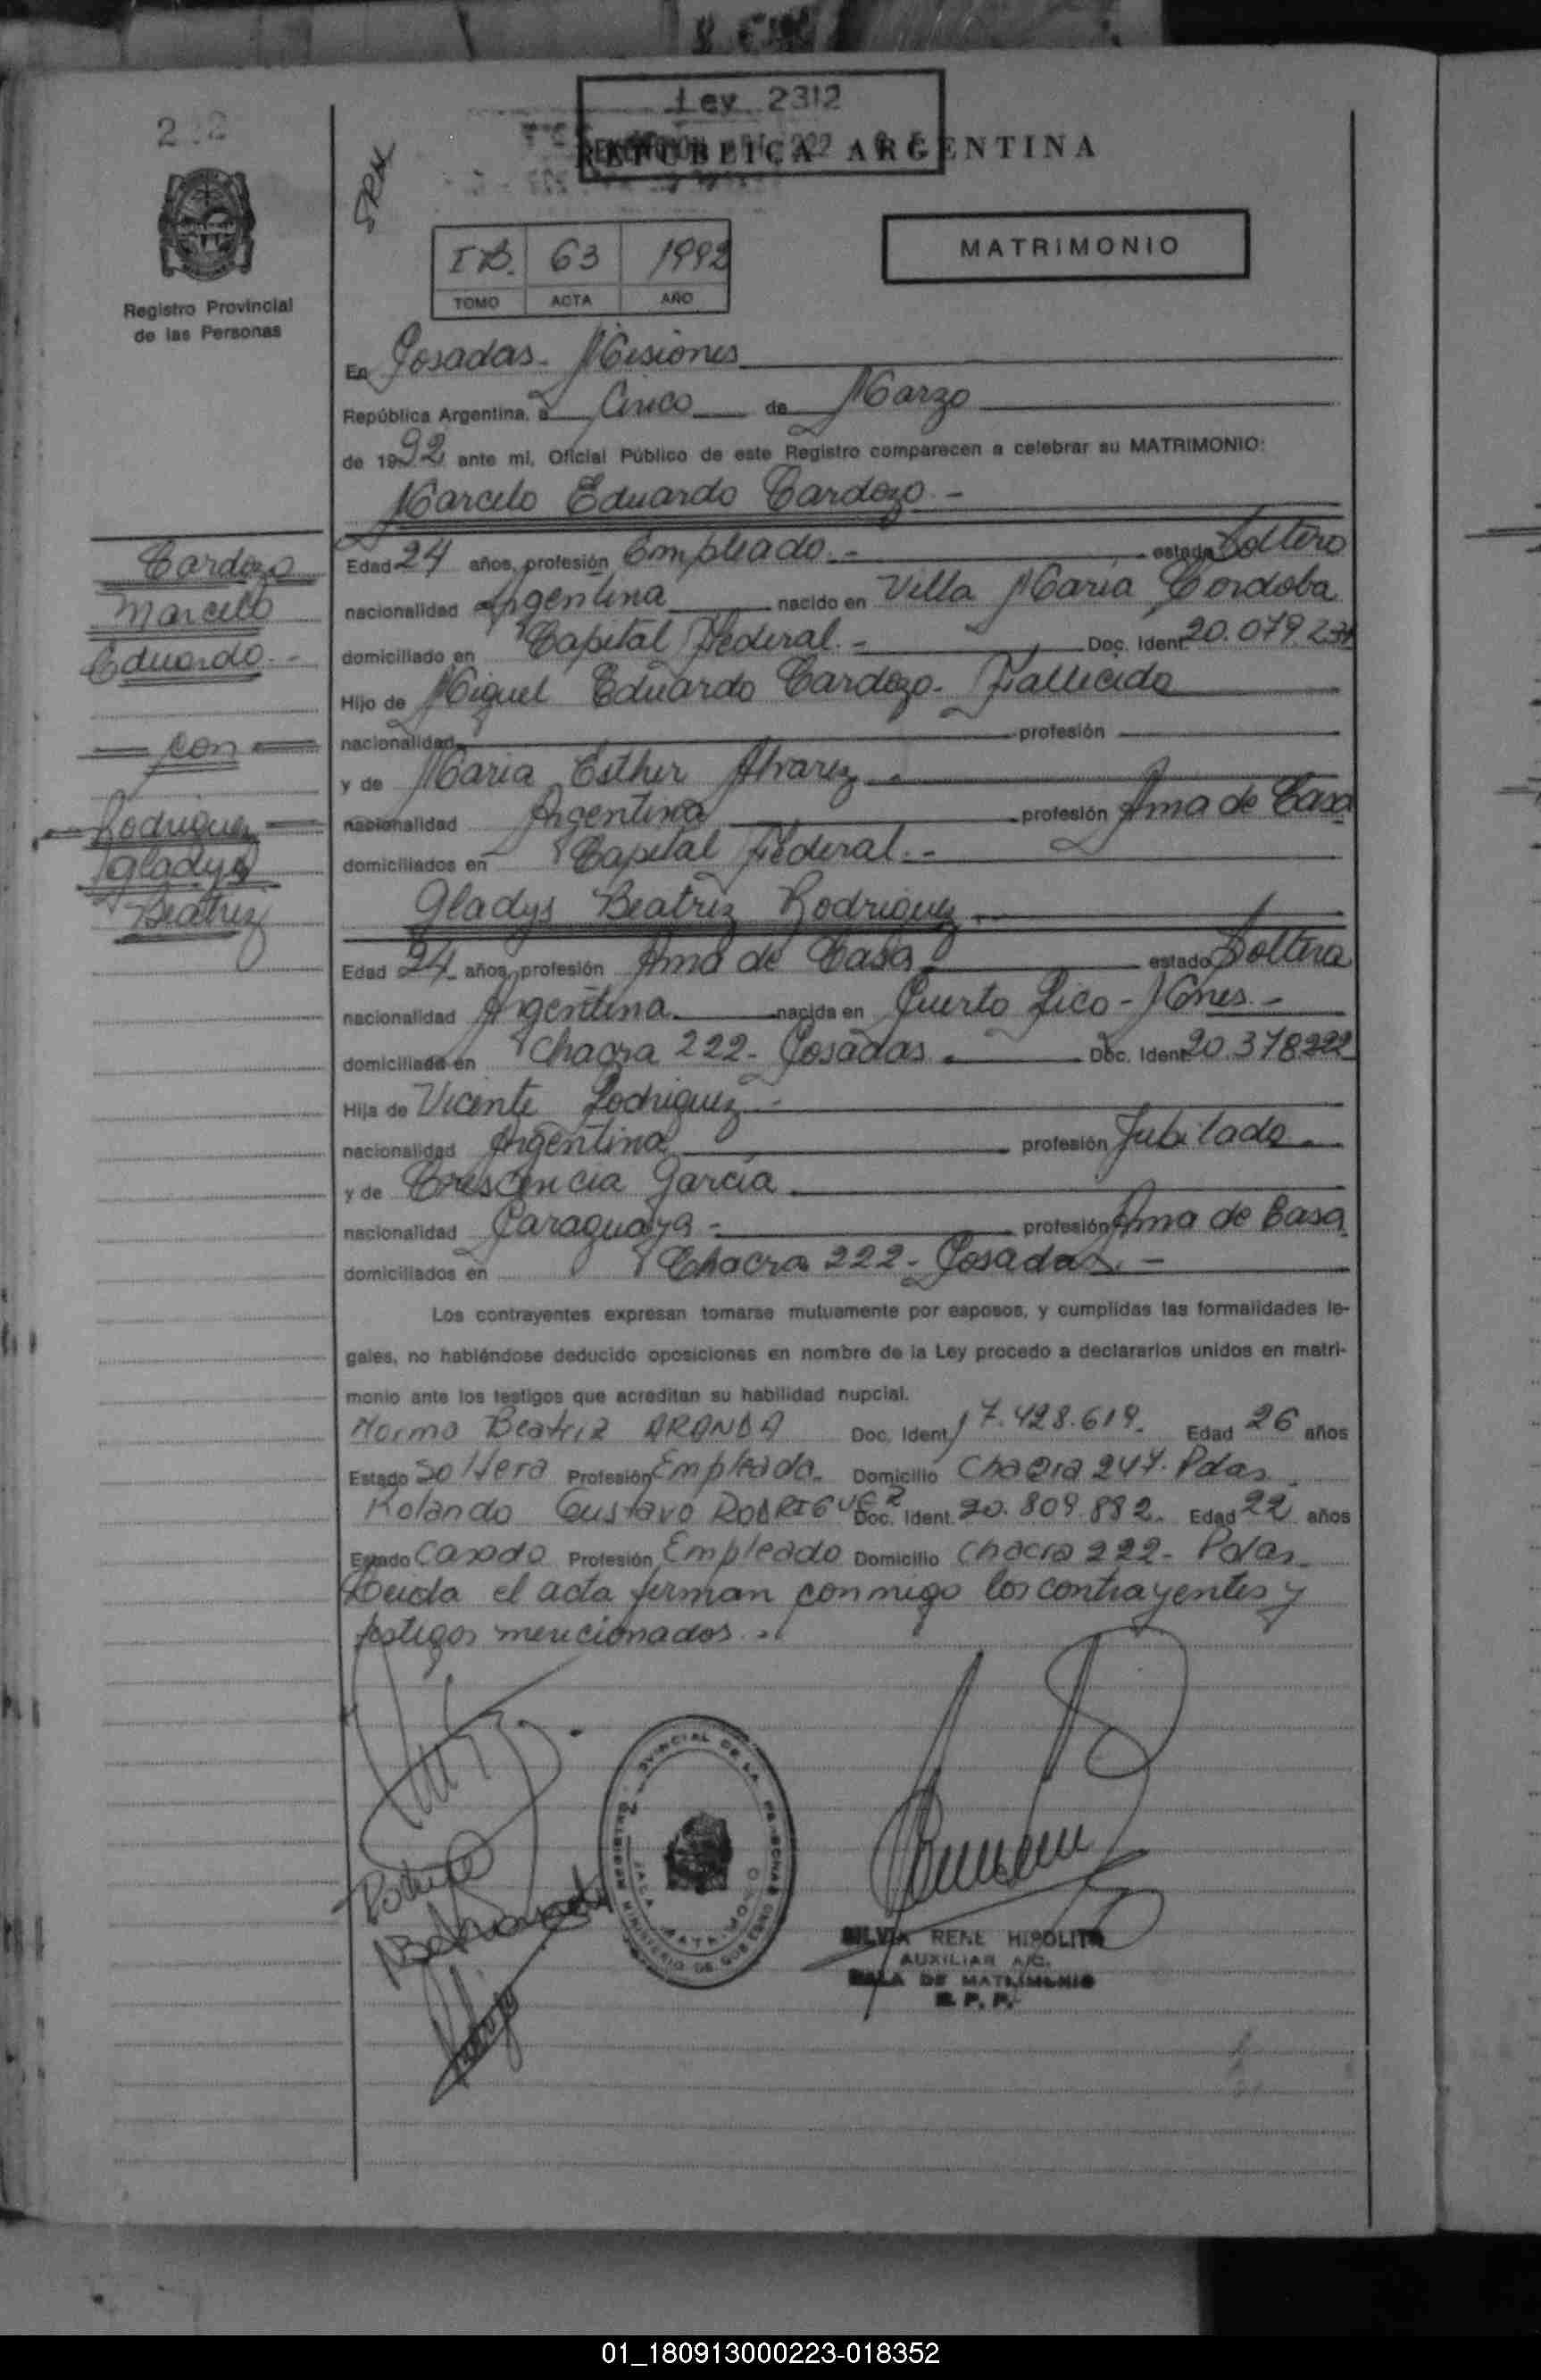 Ley 2312
REPUBLICA ARGENTINA
MATRIMONIO
63 1992
TOMO ACTA AÑO
Registro Provincial
de las Personas
En Posadas - Misiones
República Argentina, a Cinco de Marzo
de 1992 ante mi, Oficial Público de este Registro comparecen a celebrar su MATRIMONIO:
Marcelo Eduardo Cardozo -
Cardozo
Marcelo
Eduardo. -
con
Rodriguez
Gladys
Beatriz
Edad 24 años, profesión Empleado. - estado Soltero
nacionalidad Argentina nacido en Villa Maria Cordoba
domiciliado en Capital Federal. - Doc. Ident. 20.079.231
Hijo de Miguel Eduardo Cardozo - Fallecido
nacionalidad profesión
y de Maria Esther Alvarez
nacionalidad Argentina profesión Ama de Casa
domiciliados en Capital Federal. -
Gladys Beatriz Rodriguez
Edad 24 años, profesión Ama de Casa estado Soltera
nacionalidad Argentina nacida en Puerto Rico - Mnes. -
domiciliada en Chacra 222 - Posadas Doc. Ident. 20.378222
Hija de Vicente Rodriguez -
nacionalidad Argentina profesión Jubilado
y de Crescencia Garcia
nacionalidad Paraguaya - profesión Ama de Casa
domiciliados en Chacra 222 - Posadas. -
Los contrayentes expresan tomarse mutuamente por esposos, y cumplidas las formalidades le-
gales, no habiéndose deducido oposiciones en nombre de la Ley procedo a declararlos unidos en matri-
monio ante los testigos que acreditan su habilidad nupcial.
Norma Beatriz ARANDA Doc. Ident. 17.428.619. Edad 26 años
Estado Soltera Profesión Empleada. Domicilio Chacra 247. Pdas.
Rolando Gustavo RODRIGUEZ Doc. Ident. 20.809.882. Edad 22 años
Estado Casado Profesión Empleado Domicilio Chacra 222 - Pdas.
Leida el acta firman conmigo los contrayentes y
testigos mencionados. -
SILVIA RENE HIPOLITO
AUXILIAR A/C.
SALA DE MATRIMONIO
R. P. P.
01_180913000223-018352